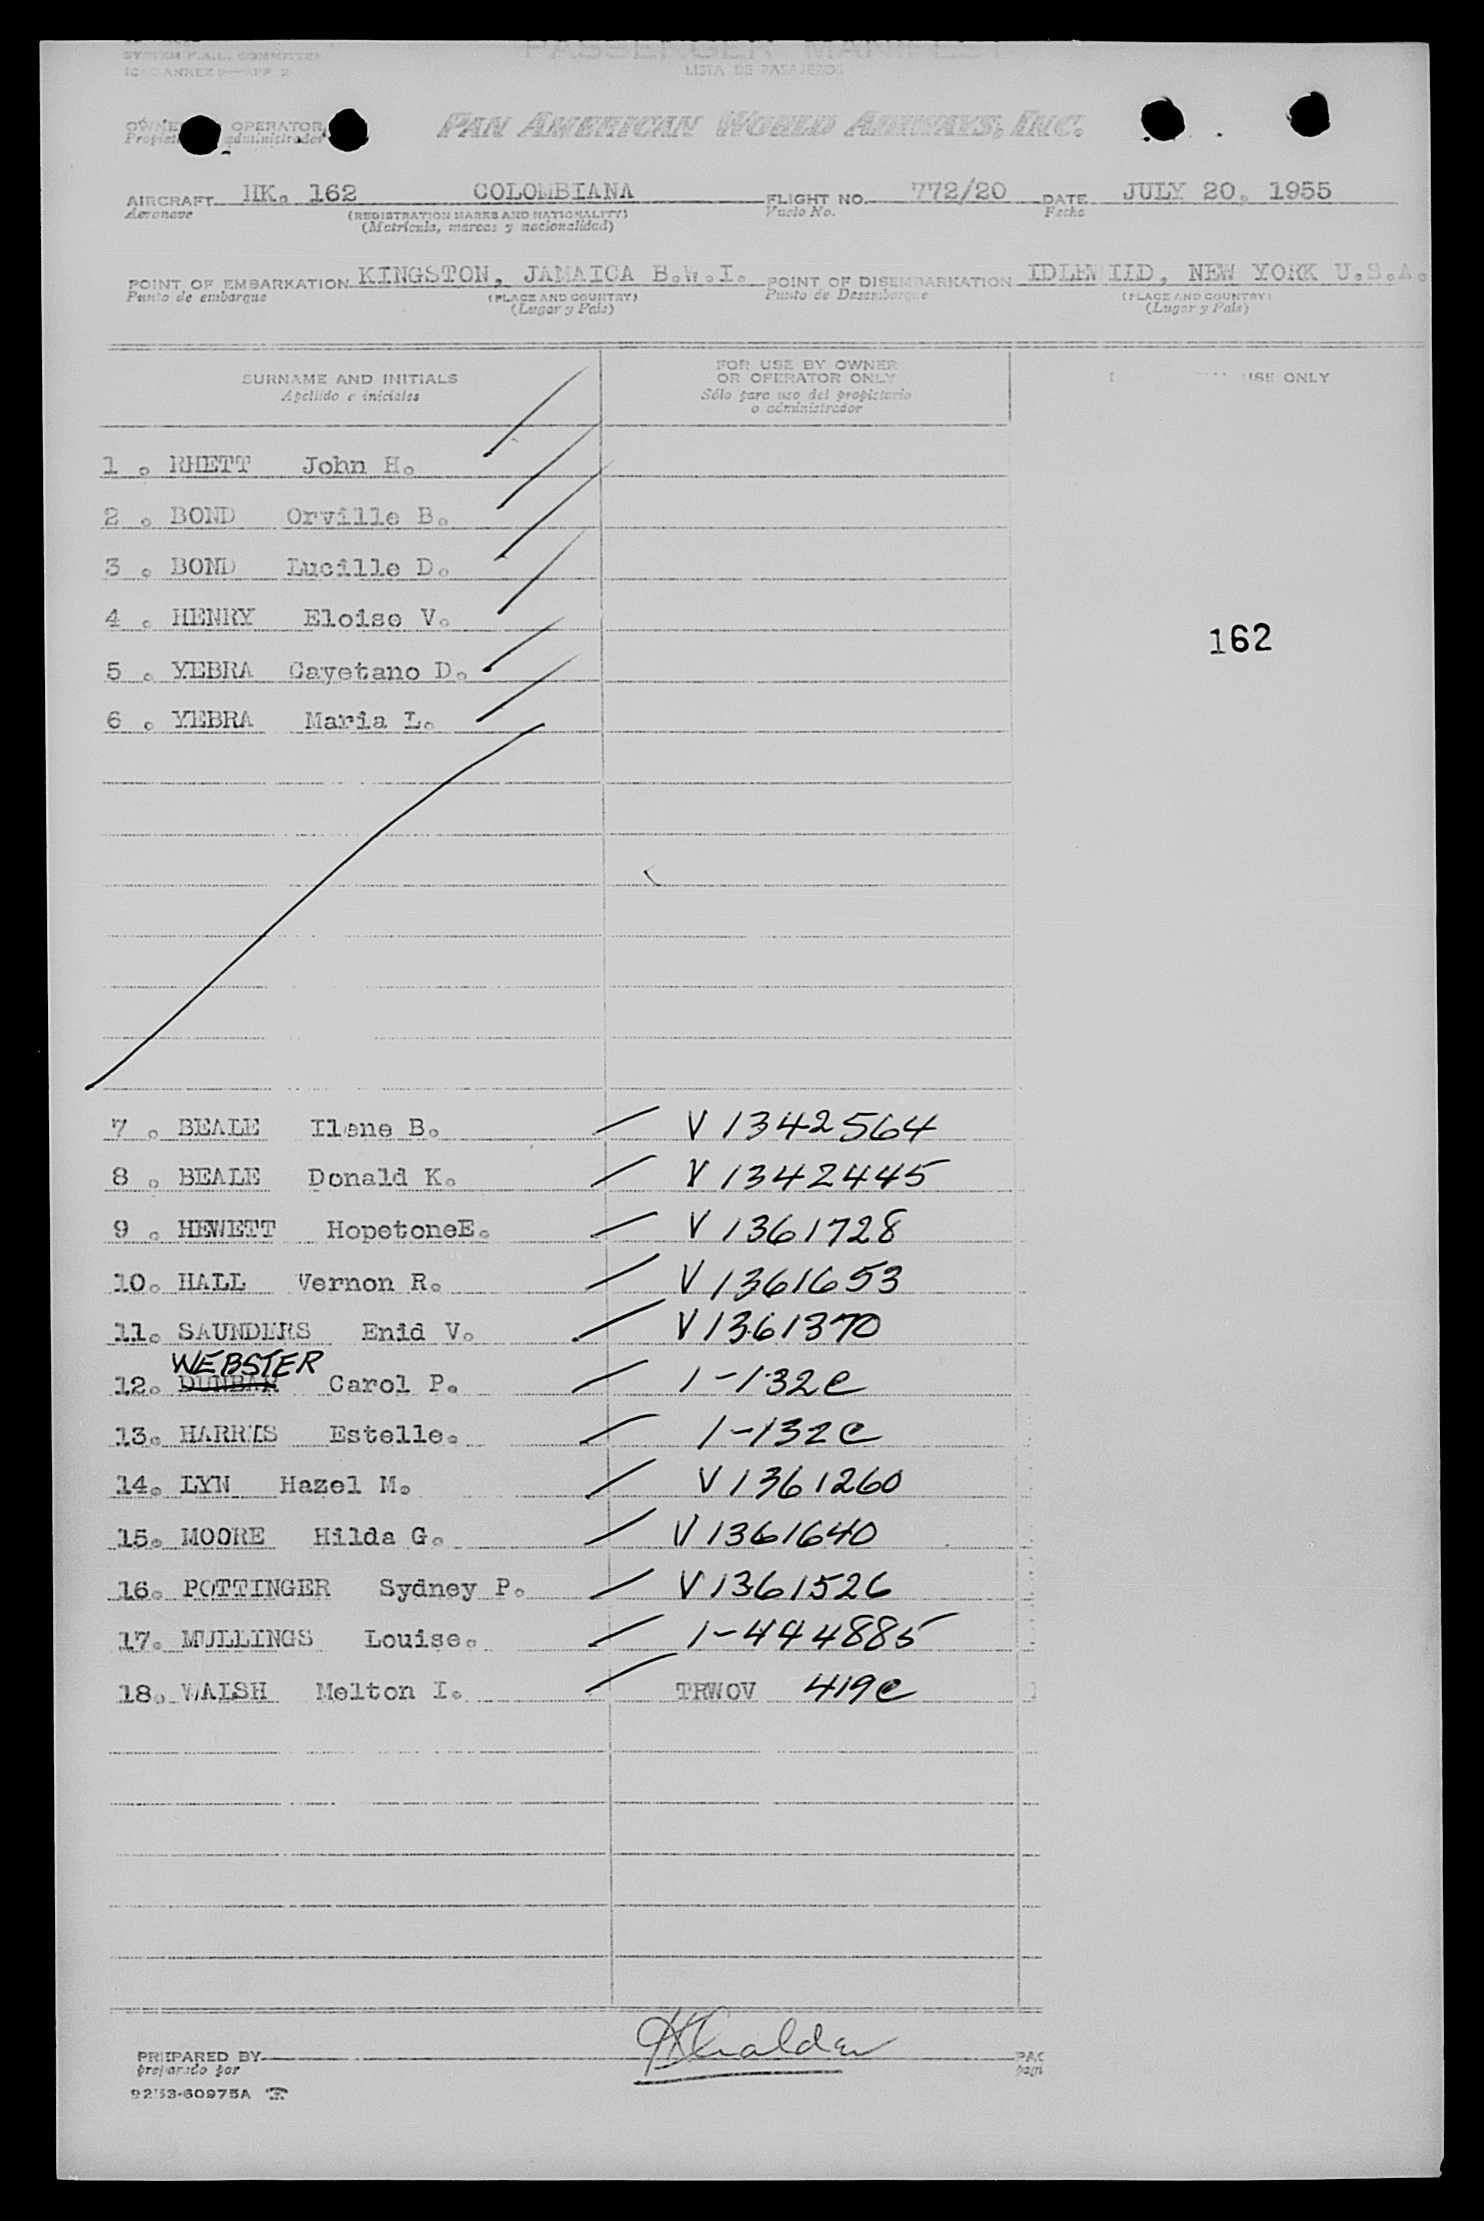 SYSTEM F.A.L. COMMITTEE
PASSENGER MANIFEST
ICAO ANNEX 9—APP 2
LISTA DE PASAJEROS
OPERATOR
PAN AMERICAN WORLD AIRWAYS, INC.
administrador
AIRCRAFT HK. 162 COLOMBIANA FLIGHT NO. 772/20 DATE JULY 20, 1955
Aeronave (REGISTRATION MARKS AND NATIONALITY) Vuelo No. Fecha
(Matrícula, marcas y nacionalidad)
POINT OF EMBARKATION KINGSTON, JAMAICA B.W.I. POINT OF DISEMBARKATION IDLEWILD, NEW YORK U.S.A.
Punto de embarque (PLACE AND COUNTRY) Punto de Desembarque (PLACE AND COUNTRY)
(Lugar y País) (Lugar y País)
SURNAME AND INITIALS
Apellido e iniciales
FOR USE BY OWNER
OR OPERATOR ONLY
Sólo para uso del propietario
o administrador
USE ONLY
1. RHETT John H.
2. BOND Orville B.
3. BOND Lucille D.
4. HENRY Eloise V.
162
5. YEBRA Cayetano D.
6. YEBRA Maria L.
7. BEALE Ilene B. V 1342564
8. BEALE Donald K. V 1342445
9. HEWETT HopetoneE. V 1361728
10. HALL Vernon R. V 1361653
11. SAUNDERS Enid V. V 1361370
WEBSTER
12. DUNBAR Carol P. 1-132C
13. HARRIS Estelle. 1-132C
14. LYN Hazel M. V 1361260
15. MOORE Hilda G. V 1361640
16. POTTINGER Sydney P. V 1361526
17. MULLINGS Louise. 1-444885
18. WALSH Melton I. TRWOV 419C
PREPARED BY
preparado por
9253-60975A